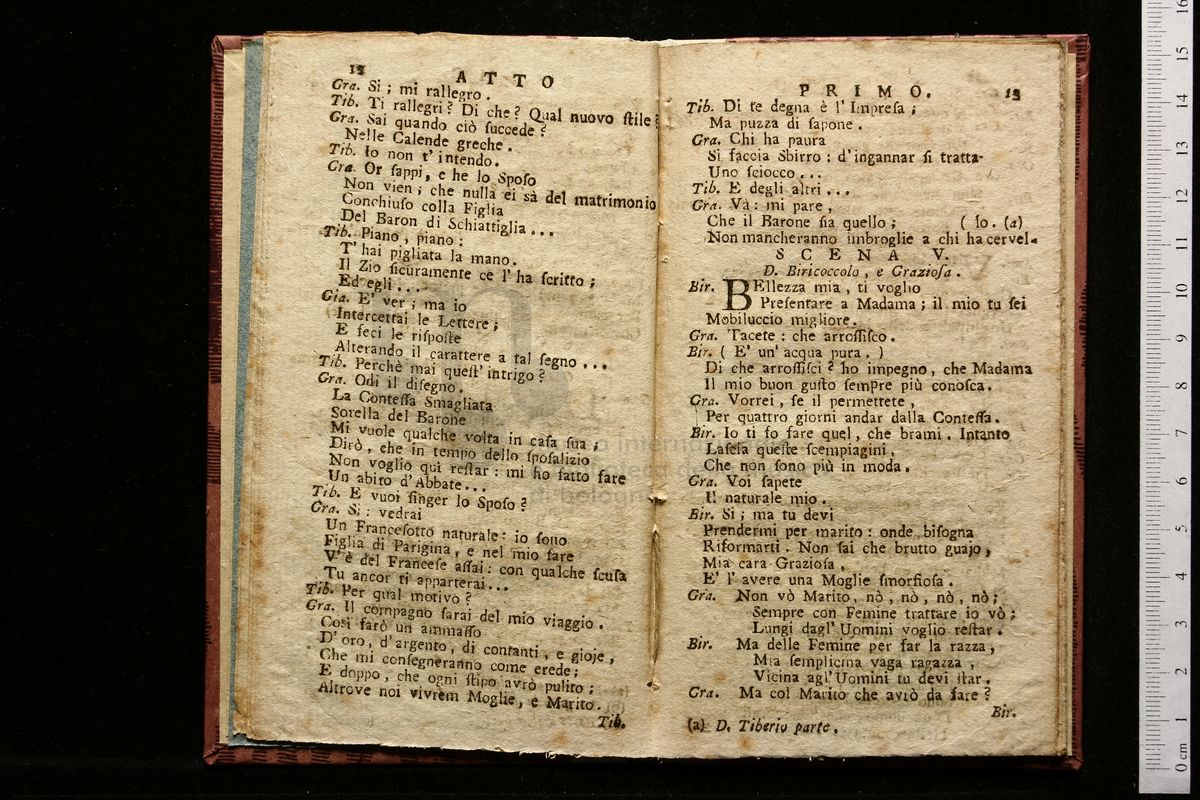 12 ATTO
Gra. Si ; mi rallegro .
Tib. Ti rallegri ? Di che ? Qual nuovo ſtile ?
Gra. Sai quando ciò ſuccede ?
Nelle Calende greche .
Tib. Io non t' intendo .
Gra. Or ſappi, e he lo Spoſo
Non vien ; che nulla ei sà del matrimonio
Conchiuſo colla Figlia
Del Baron di Schiattiglia ...
Tib. Piano , piano :
T' hai pigliata la mano .
Il Zio ſicuramente ce l' ha ſcritto ;
Ed egli ...
Gra. E' ver ; ma io
Intercettai le Lettere ;
E feci le riſpoſte
Alterando il carattere a tal ſegno ...
Tib. Perchè mai queſt' intrigo ?
Gra. Odi il diſegno .
La Conteſſa Smagliata
Sorella del Barone
Mi vuole qualche volta in caſa ſua ;
Dirò , che in tempo dello ſpoſalizio
Non voglio quì reſtar : mi ho fatto fare
Un abito d'Abbate ...
Tib. E vuoi finger lo Spoſo ?
Gra. Si : vedrai
Un Franceſotto naturale : io ſono
Figlia di Parigina , e nel mio fare
V' è del Franceſe aſſai : con qualche ſcuſa
Tu ancor ti apparterai ...
Tib. Per qual motivo ?
Gra. Il compagno ſarai del mio viaggio .
Così farò un ammaſſo
D' oro , d' argento , di contanti , e gioje ,
Che mi conſegneranno come erede ;
E doppo , che ogni ſtipo avrò pulito ;
Altrove noi vivrem Moglie , e Marito .
Tib.
PRIMO. 13
Tib. Di te degna è l' Impreſa ;
Ma puzza di ſapone .
Gra. Chi ha paura
Si faccia Sbirro : d'ingannar ſi tratta
Uno ſciocco ...
Tib. E degli altri ...
Gra. Và : mi pare ,
Che il Barone ſia quello ; ( lo . (a)
Non mancheranno imbroglie a chi ha cervel-
SCENA V.
D. Biricoccolo , e Grazioſa .
Bir. BEllezza mia , ti voglio
Preſentare a Madama ; il mio tu ſei
Mobiluccio migliore .
Gra. Tacete : che arroſſiſco .
Bir. ( E' un' acqua pura . )
Di che arroſſiſci ? ho impegno , che Madama
Il mio buon guſto ſempre più conoſca .
Gra. Vorrei , ſe il permettete ,
Per quattro giorni andar dalla Conteſſa .
Bir. Io ti fo fare quel , che brami . Intanto
Laſcia queſte ſcempiagini ,
Che non ſono più in moda .
Gra. Voi ſapete
Il naturale mio .
Bir. Si ; ma tu devi
Prendermi per marito : onde biſogna
Riformarti . Non ſai che brutto guajo ,
Mia cara Grazioſa ,
E' l' avere una Moglie ſmorfioſa .
Gra. Non vò Marito , nò , nò , nò , nò ;
Sempre con Femine trattare io vò ;
Lungi dagl' Uomini voglio reſtar .
Bir. Ma delle Femine per far la razza ,
Mia ſemplicina vaga ragazza ,
Vicina agl' Uomini tu devi ſtar .
Gra. Ma col Marito che avrò da fare ?
Bir.
(a) D. Tiberio parte .